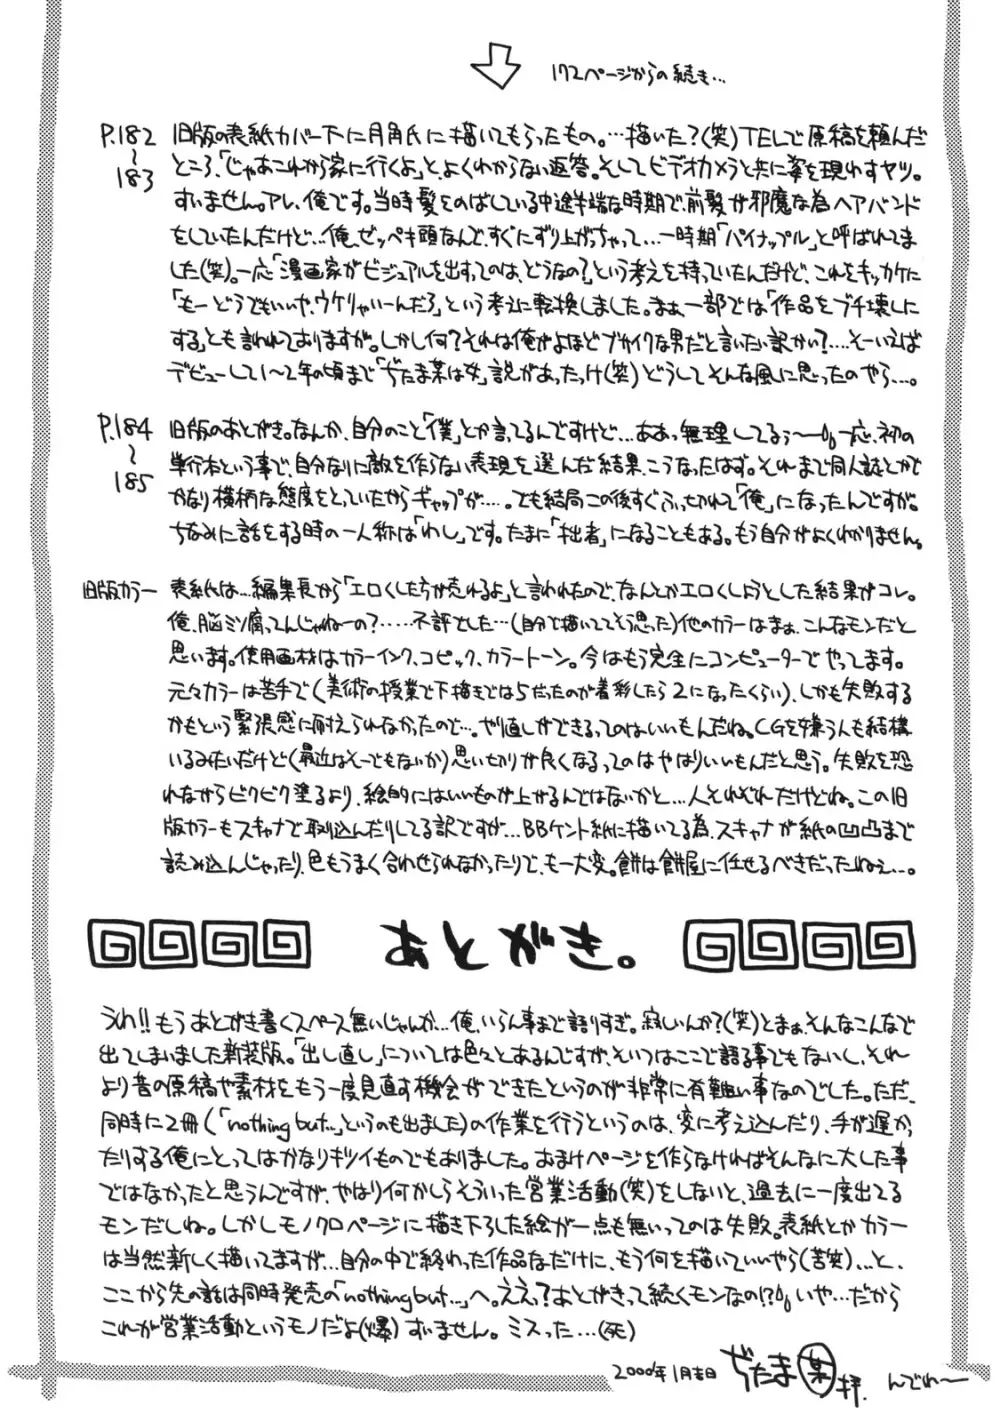 172ページからの続き…
P.182〜183 旧版の表紙カバー下に月角氏に描いてもらったもの。…描いた?(笑)TELで原稿を頼んだ
ところ、「じゃあこれから家に行くよ」と、よくわからない返答。そしてビデオカメラと共に姿を現わすヤツ。
すいません。アレ、俺です。当時髪をのばしている中途半端な時期で、前髪が邪魔な為ヘアバンド
をしていたんだけど…俺、ゼッペキ頭なんで、すぐにずり上がっちゃって…一時期「パイナップル」と呼ばれてま
した(笑)。一応「漫画家がビジュアルを出すってのは、どうなの?」という考えを持っていたんだけど、これをキッカケに
「もーどうでもいいや、ウケりゃいーんだろ」という考えに転換しました。まぁ一部では「作品をブチ壊しに
する」とも言われておりますが。しかし何?それは俺がよほどブサイクな男だと言いたい訳かい?…そーいえば
デビューして1〜2年の頃まで「ぢたま某は女」説があったっけ(笑)どうしてそんな風に思ったのやら…。
P.184〜185 旧版のあとがき。なんか、自分のこと「僕」とか言ってるんですけど…ああっ無理してるぅ〜一応、初の
単行本という事で、自分なりに敵を作らない表現を選んだ結果、こうなったはず。それまで同人誌とかで
かなり横柄な態度をとっていたからギャップが……。でも結局この後すぐふっきれて「俺」になったんですが。
ちなみに話をする時の一人称は「わし」です。たまに「拙者」になることもある。もう自分がよくわかりません。
旧版カラー 表紙は…編集長から「エロくした方が売れるよ」と言われたので、なんとかエロくしようとした結果がコレ。
俺、脳ミソ腐ってんじゃねーの?……不評でした…(自分で描いててそう思った)他のカラーはまぁ、こんなモンだと
思います。使用画材はカラーインク、コピック、カラートーン。今はもう完全にコンピューターでやってます。
元々カラーは苦手で(美術の授業で下描きでは5だったのが着彩したら2になったくらい)、しかも失敗する
かもという緊張感に耐えられなかったので…。やり直しができるってのはいいもんだね。CGを嫌う人も結構
いるみたいだけど(最近はそーでもないか)思い切りが良くなるってのはやはりいいもんだと思う。失敗を恐
れながらビクビク塗るより、絵的にはいいものが上がるんではないかと…人それぞれだけどね。この旧
版カラーもスキャナで取り込んだりしてる訳ですが…BBケント紙に描いてる為、スキャナが紙の凹凸まで
読み込んじゃったり、色もうまく合わせられなかったりで、もー大変。餅は餅屋に任せるべきだったねぇ…。
あとがき。
うわ!!もうあとがき書くスペース無いじゃんか…俺、いらん事まで語りすぎ。寂しいんか?(笑)とまぁ、そんなこんなで
出てしまいました新装版。「出し直し」については色々とあるんですが、そいつはここで語る事でもないし、それ
より昔の原稿や素材をもう一度見直す機会ができたというのが非常に有難い事なのでした。ただ、
同時に2冊(「nothing but…」というのも出ました)の作業を行うというのは、変に考え込んだり、手が遅かっ
たりする俺にとってはかなりキツイものでもありました。おまけページを作らなければそんなに大した事
ではなかったと思うんですが、やはり何かしらそういった営業活動(笑)をしないと、過去に一度出てる
モンだしね。しかしモノクロページに描き下ろした絵が一点も無いってのは失敗。表紙とかカラー
は当然新しく描いてますが…自分の中で終わった作品なだけに、もう何を描いていいやら(苦笑)…と、
ここから先の話は同時発売の「nothing but…」へ。ええ?あとがきって続くモンなの!?いや…だから
これが営業活動というモノだよ(爆)すいません。ミスった…(死)
2000年1月吉日 ぢたま某拝. んでわ〜